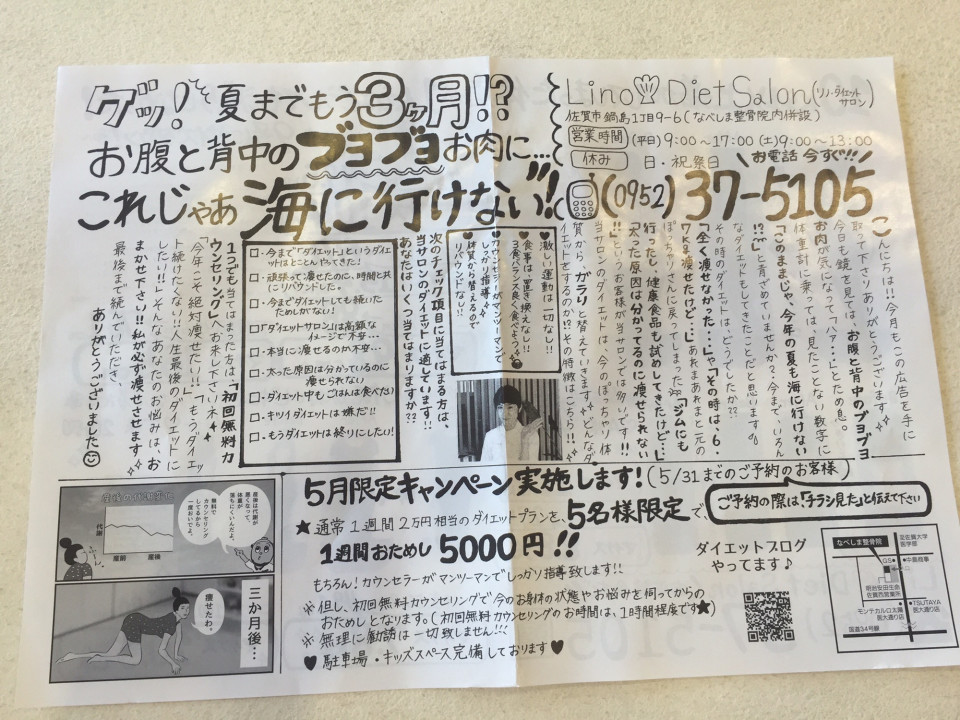 ゲッ!夏までもう3ヶ月!?
お腹と背中のブヨブヨお肉に…
これじゃあ海に行けない!!
Lino Diet Salon(リノ・ダイエットサロン)
佐賀市鍋島1丁目9-6(なべしま整骨院内併設)
営業時間 (平日)9:00〜17:00(土)9:00〜13:00
休み 日・祝祭日
お電話今すぐ!!
(0952)37-5105
こんにちは!!今月もこの広告を手に
取って下さりありがとうございます。
今日も鏡を見ては、お腹と背中のブヨブヨ
お肉が気になって「ハァ…」とため息。
体重計に乗っては、見たことない数字に
「このままじゃ、今年の夏も海に行けない
!?」と青ざめていませんか?今まで、いろん
なダイエットもしてきたことだと思います。
その時のダイエットは、どうでしたか??
「全く痩せなかった…」や「その時は、6・
7kg痩せたけど…」あれよあれよと元の
ぽっちゃりさんに戻ってしまったか「ジムにも
行ったし、健康食品も試めしてきたけど…」
「太った原因は分かってるのに痩せられない
!!」というお客様が当サロンでは多いです!!
当サロンのダイエットは、今のぽっちゃり体
質からガラリと替えていきます。どんなダ
イエットをするのか!?その特徴はこちら!!
♥激しい運動は一切なし!!
♥食事は、置き換えなし!!
3食バランス良く食べよう
♥カウンセラーがマンツーマンで
しっかり指導
♥体質から替えるので
リバウンドなし!!
次のチェック項目に当てはまる方は、
当サロンのダイエットに適しています!!
あなたはいくつ当てはまりますか??
□・今まで「ダイエット」というダイエ
ットはとことんやってきた!
□・頑張って痩せたのに、時間と共
にリバウンドした。
□・今までダイエットしても続いた
ためしがない!
□・「ダイエットサロン」は高額な
イメージで不安…
□・本当に痩せるのか不安…
□・太った原因は分かっているのに
痩せられない
□・ダイエット中もごはんは食べたい
□・キツイダイエットは嫌だ!!
□・もうダイエットは終りにしたい!
1つでも当てはまった方は、「初回無料カ
ウンセリング」へお来し下さいネ
「今年こそ絶対痩せたい!!」「もうダイエッ
ト続けたくない!!人生最後のダイエットに
したい!!」そんなあなたのお悩みは、お
まかせ下さい!!私が必ず痩せさせます
最後まで読んでいただき、
ありがとうございました
5月限定キャンペーン実施します!(5/31までのご予約のお客様)
ご予約の際は、「チラシ見た」と伝えて下さい
★通常1週間2万円相当のダイエットプランを、5名様限定で、
1週間おためし5000円!!
もちろん!カウンセラーがマンツーマンでしっかり指導致します!!
※但し、初回無料カウンセリングで今のお身体の状態やお悩みを伺ってからの
おためしとなります。(初回無料カウンセリングのお時間は、1時間程度です★)
※無理に勧誘は一切致しません!!!
♥駐車場・キッズスペース完備しております♥
ダイエットブログ
やってます♪
代謝
産前 産後
産後は代謝が
悪くなって、
体重が
落ちにくいんだよ。
無料で
カウンセリング
してるから
一度おいでよ。
三か月後…
痩せたわ。
なべしま整骨院
至佐賀大学
医学部
GS
中島商事
明治安田生命
佐賀西営業所
TSUTAYA
医大通り店
モンテカルロ太陽
医大通り店
国道34号線